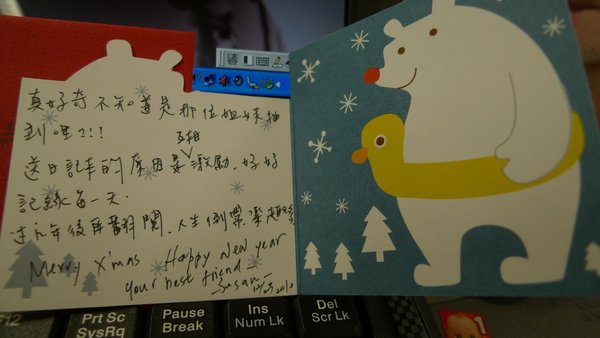 真好奇不知道是那位姐妹抽
到哩?!!
送日記本的原因是互相激勵,好好
記錄每一天.
過幾年後再翻閱,人生倒帶樂趣多
Merry X'mas Happy New year
your best friend~
Susan~
12/25 2010
F12
Prt Sc
SysRq
Pause
Break
Ins
Num Lk
Del
Scr Lk
1